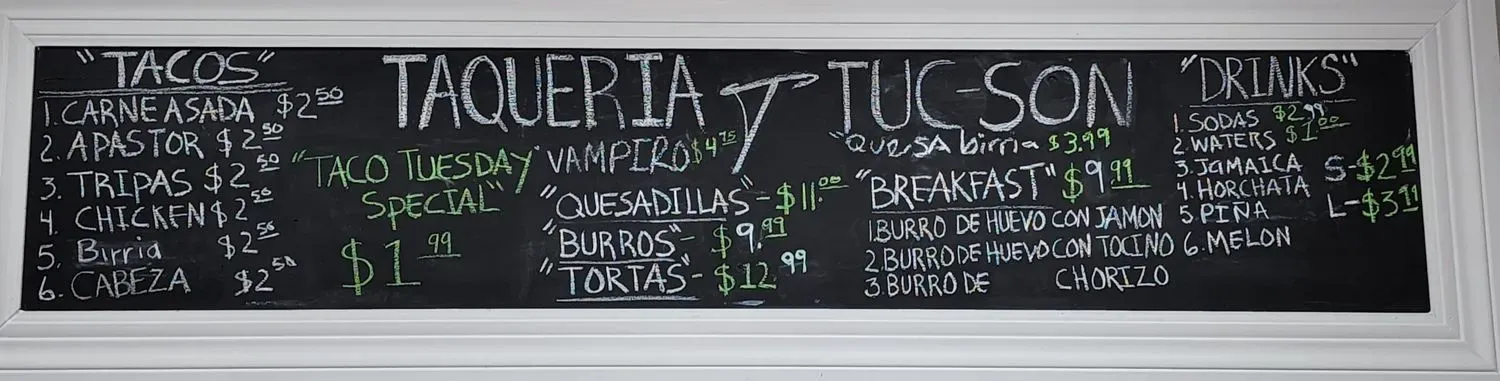 "TACOS"
1. CARNE ASADA $2.50
2. APASTOR $2.50
3. TRIPAS $2.50
4. CHICKEN $2.50
5. Birria $2.50
6. CABEZA $2.50
TAQUERIA Y TUC-SON
"TACO TUESDAY
SPECIAL"
$1.99
VAMPIRO $4.75
"QUESADILLAS"-$11.00
"BURROS"- $9.99
"TORTAS"- $12.99
"QUESA birria $3.99
"BREAKFAST" $9.99
1. BURRO DE HUEVO CON JAMON
2. BURRO DE HUEVO CON TOCINO
3. BURRO DE CHORIZO
"DRINKS"
1. SODAS $2.99
2 WATERS $1.00
3. JAMAICA
4. HORCHATA
5. PIÑA
6. MELON
S-$2.99
L-$3.99